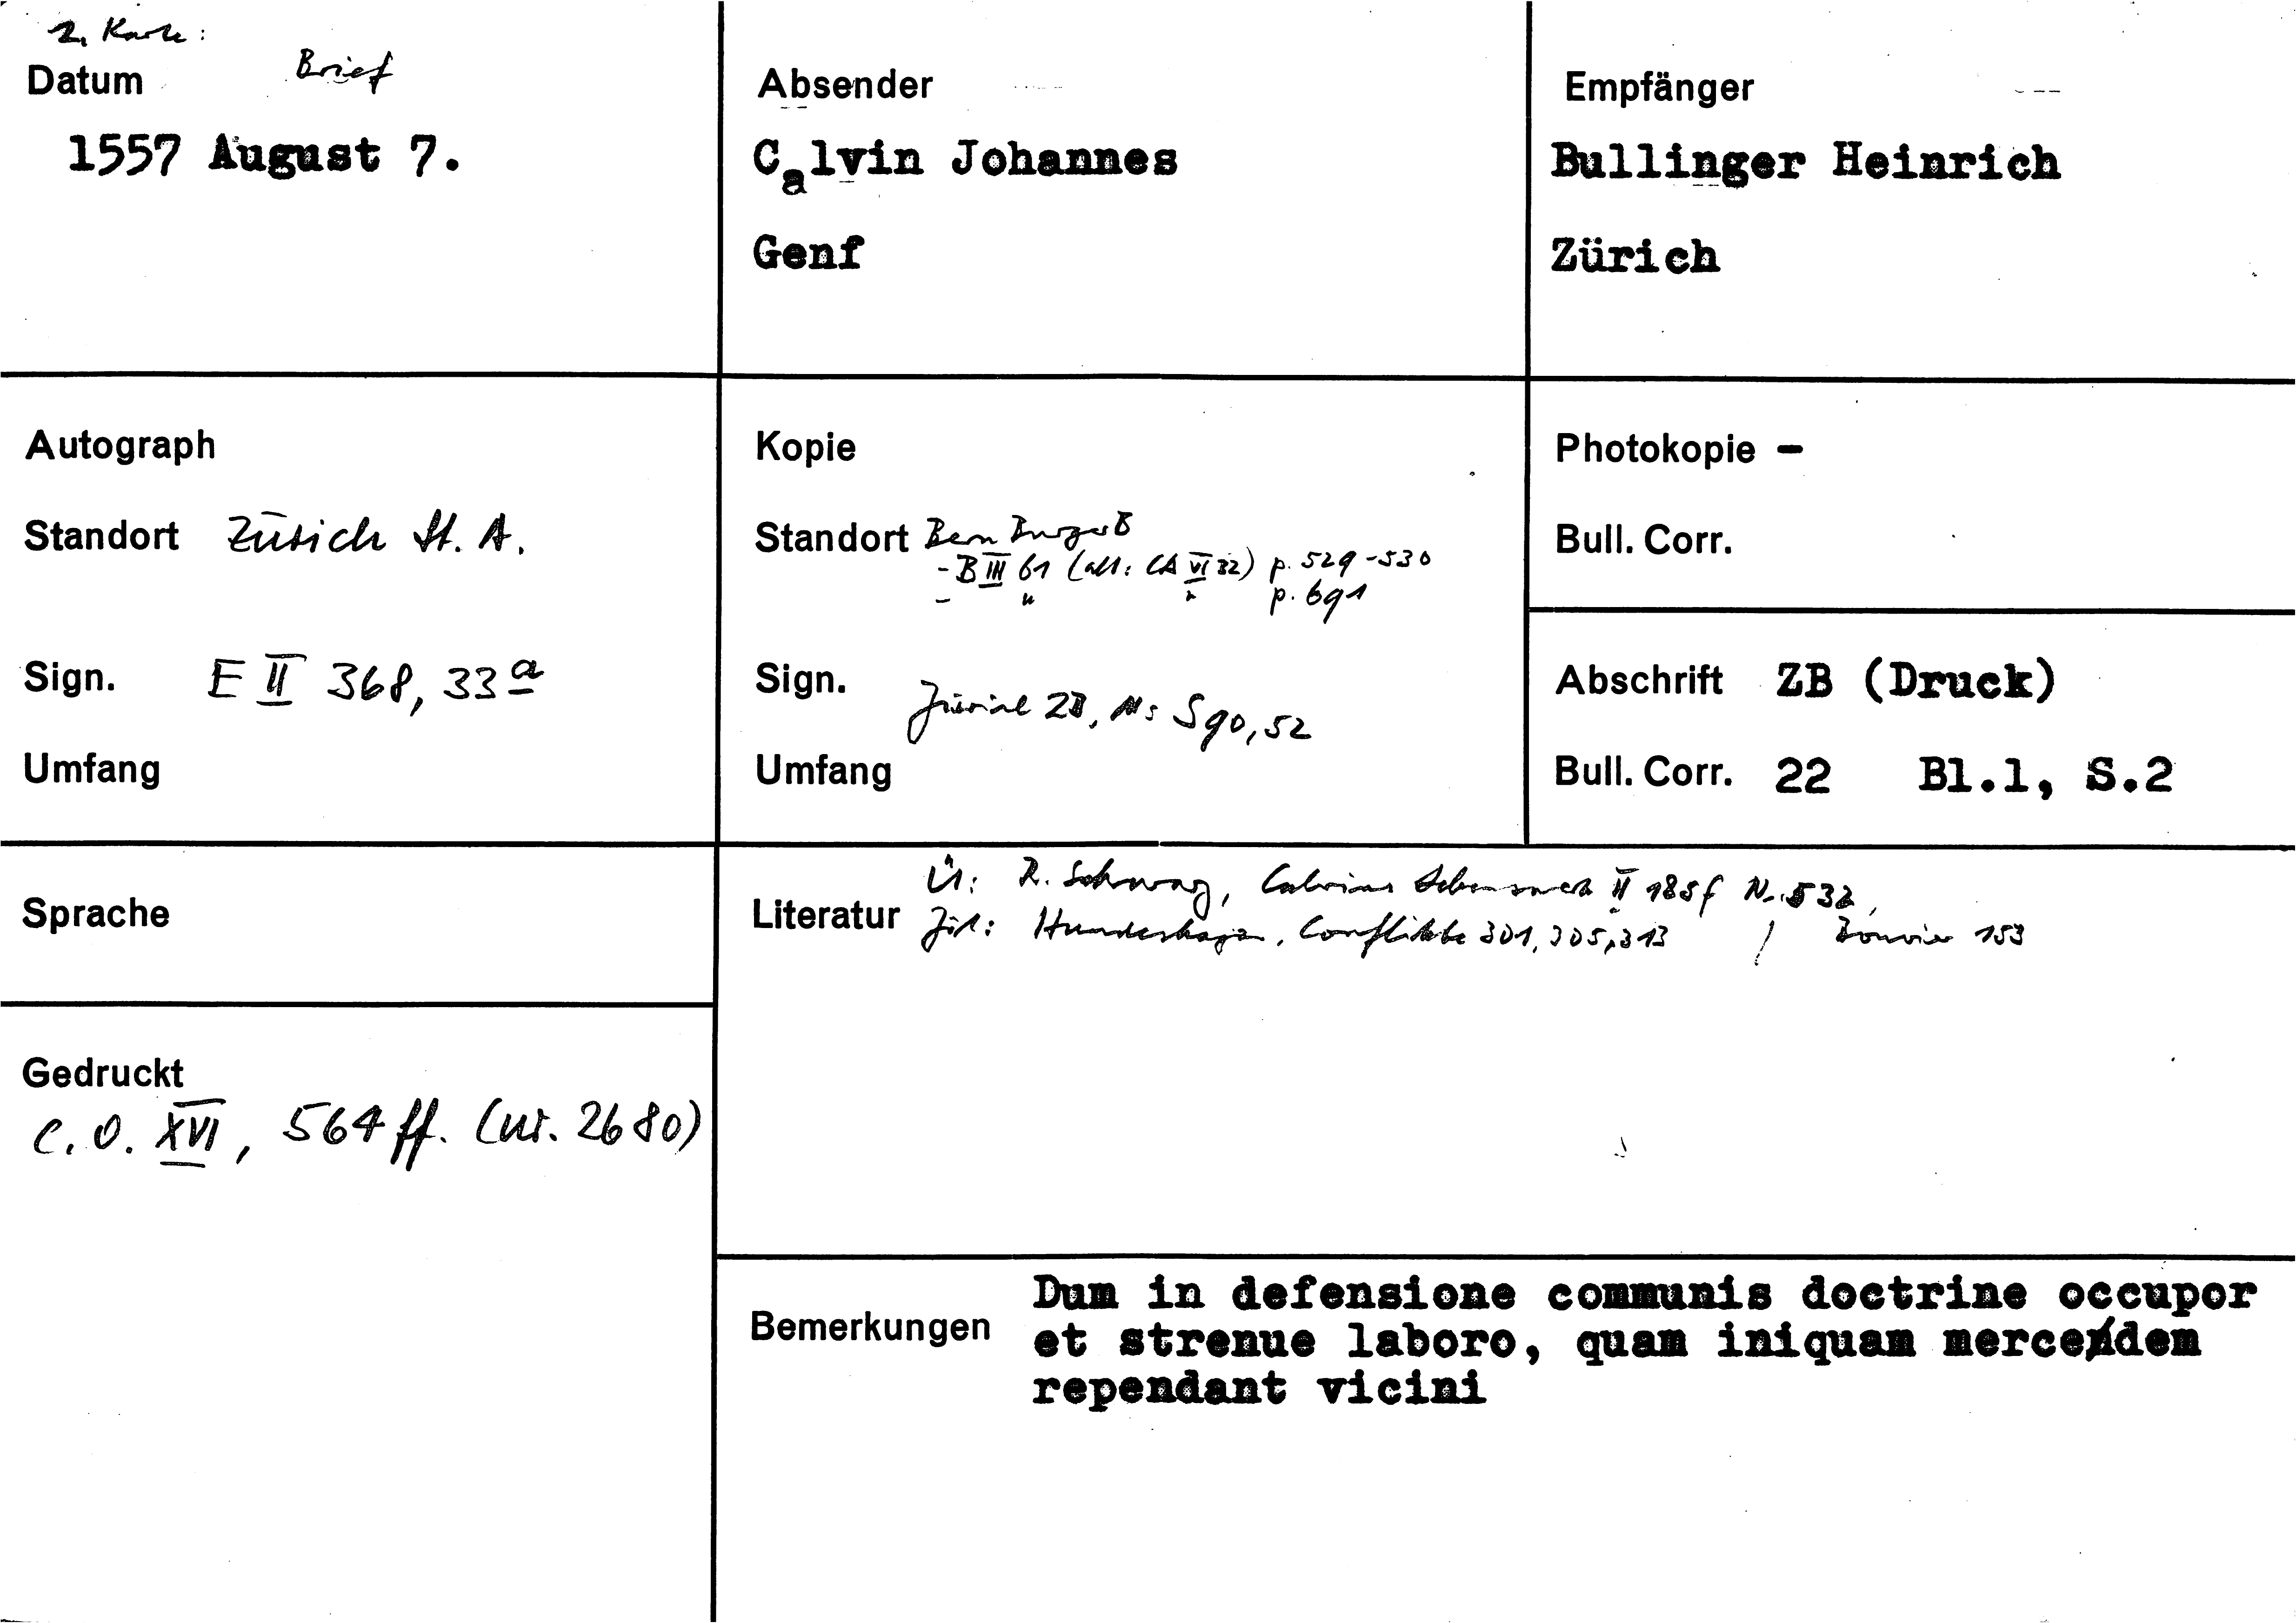 2. Karte:
Datum Brief
1557 August 7.
Absender
Calvin Johannes
Genf
Empfänger
Bullinger Heinrich
Zürich
Autograph
Standort Zürich St. A.
Sign. E II 368, 33a
Umfang
Kopie
Standort Bern BurgerB
- B III 61 (alt: CA VI 32) p. 529-530
- " " p. 691
Sign. Zürich ZB, Ms S 90, 52
Umfang
Photokopie -
Bull. Corr.
Abschrift ZB (Druck)
Bull. Corr. 22 Bl.1, S.2
Sprache
Literatur
Üs: R. Schwarz, Calvins Lebenswerk II 185f Nr. 532,
Zit: Hundeshagen, Conflikte 301, 305, 313 / Bouvier 153
Gedruckt
C.O. XVI, 564 ff. (nr. 2680)
Bemerkungen
Dum in defensione communis doctrine occupor
et strenue laboro, quam iniquam mercedem
rependant vicini